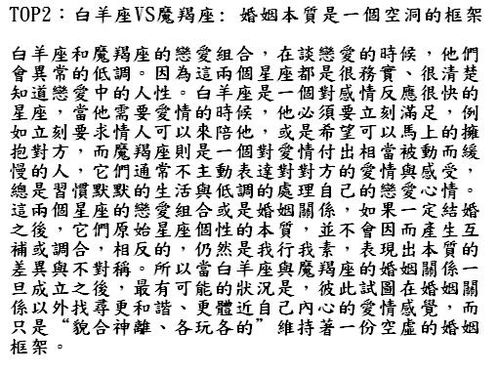 TOP2：白羊座VS魔羯座: 婚姻本質是一個空洞的框架
白羊座和魔羯座的戀愛組合，在談戀愛的時候，他們
會異常的低調。因為這兩個星座都是很務實、很清楚
知道戀愛中的人性。白羊座是一個對感情反應很快的
星座，當他需要愛情的時候，他必須要立刻滿足，例
如立刻要求情人可以來陪他，或是希望可以馬上的擁
抱對方，而魔羯座則是一個對愛情付出相當被動而緩
慢的人，它們通常不主動表達對對方的愛情與感受，
總是習慣默默的生活與低調的處理自己的戀愛心情。
這兩個星座的戀愛組合或是婚姻關係，如果一定結婚
之後，它們原始星座個性的本質，並不會因而產生互
補或調合，相反的，仍然是我行我素，表現出本質的
差異與不對稱。所以當白羊座與魔羯座的婚姻關係一
旦成立之後，最有可能的狀況是，彼此試圖在婚姻關
係以外找尋更和諧、更體近自己內心的愛情感覺，而
只是“貌合神離、各玩各的”維持著一份空虛的婚姻
框架。